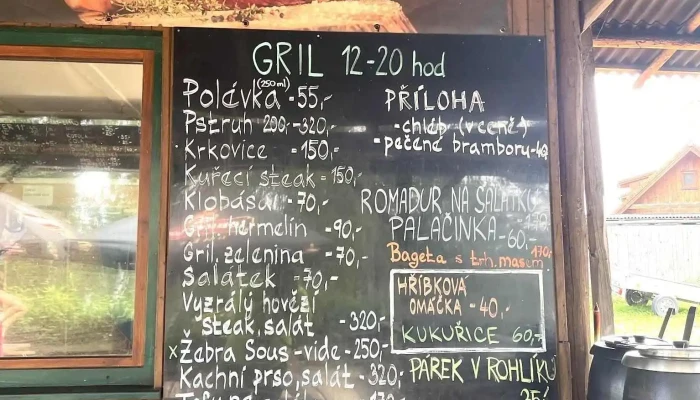 GRIL 12-20 hod
Polévka (250ml) -55,-
Pstruh 200,--320,-
Krkovice -150,-
Kuřecí steak -150,-
Klobása -70,-
Gril. hermelin -90,-
Gril. zelenina -70,-
Salátek -70,-
Vyzrálý hovězí
steak, salát -320,-
x Žebra Sous-vide -250,-
Kachní prso, salát -320,-
PŘÍLOHA
-chléb (v ceně)
-pečené brambory -40,-
ROMADUR NA SALÁTKU
170,-
PALAČINKA -60,-
Bageta s trh. masem 170,-
HŘÍBKOVÁ
OMÁČKA -40,-
KUKUŘICE 60,-
PÁREK V ROHLÍKU